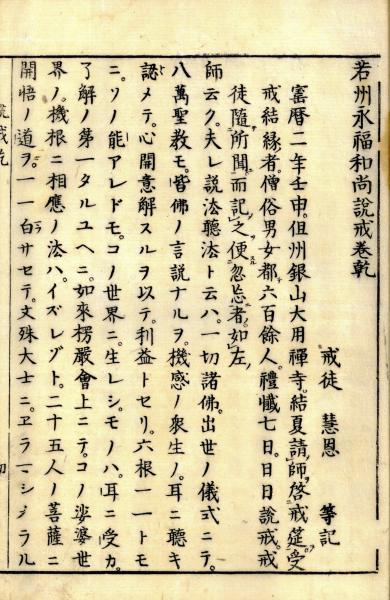 若州永福和尚說戒卷乾
戒徒　慧恩　等記
寶曆二年壬申。但州銀山大用禪寺。結夏請師。啓戒筵受
戒結緣者。僧俗男女都六百餘人。禮懺七日。日日說戒。戒
徒隨所聞而記之便忽忘者。如左。
師云ク。夫レ説法聽法ト云ハ。一切諸佛。出世ノ儀式ニテ。
八萬聖教モ。皆佛ノ言説ナルヲ。機感ノ衆生ノ。耳ニ聽キ
認メテ。心開意解スルヲ以テ。利益トセリ。六根一一トモ
ニ。ソノ能アレドモ。コノ世界ニ。生レシ。モノハ。耳ニ受カ。
了解ノ第一タルユヘニ。如來楞嚴會上ニテ。コノ娑婆世
界ノ。機根ニ相應ノ法ハ。イズレゾト。二十五人ノ菩薩ニ
開悟ノ道ヲ。一一白サセテ。文殊大士ニ。ヱラマシメラル
說戒乾